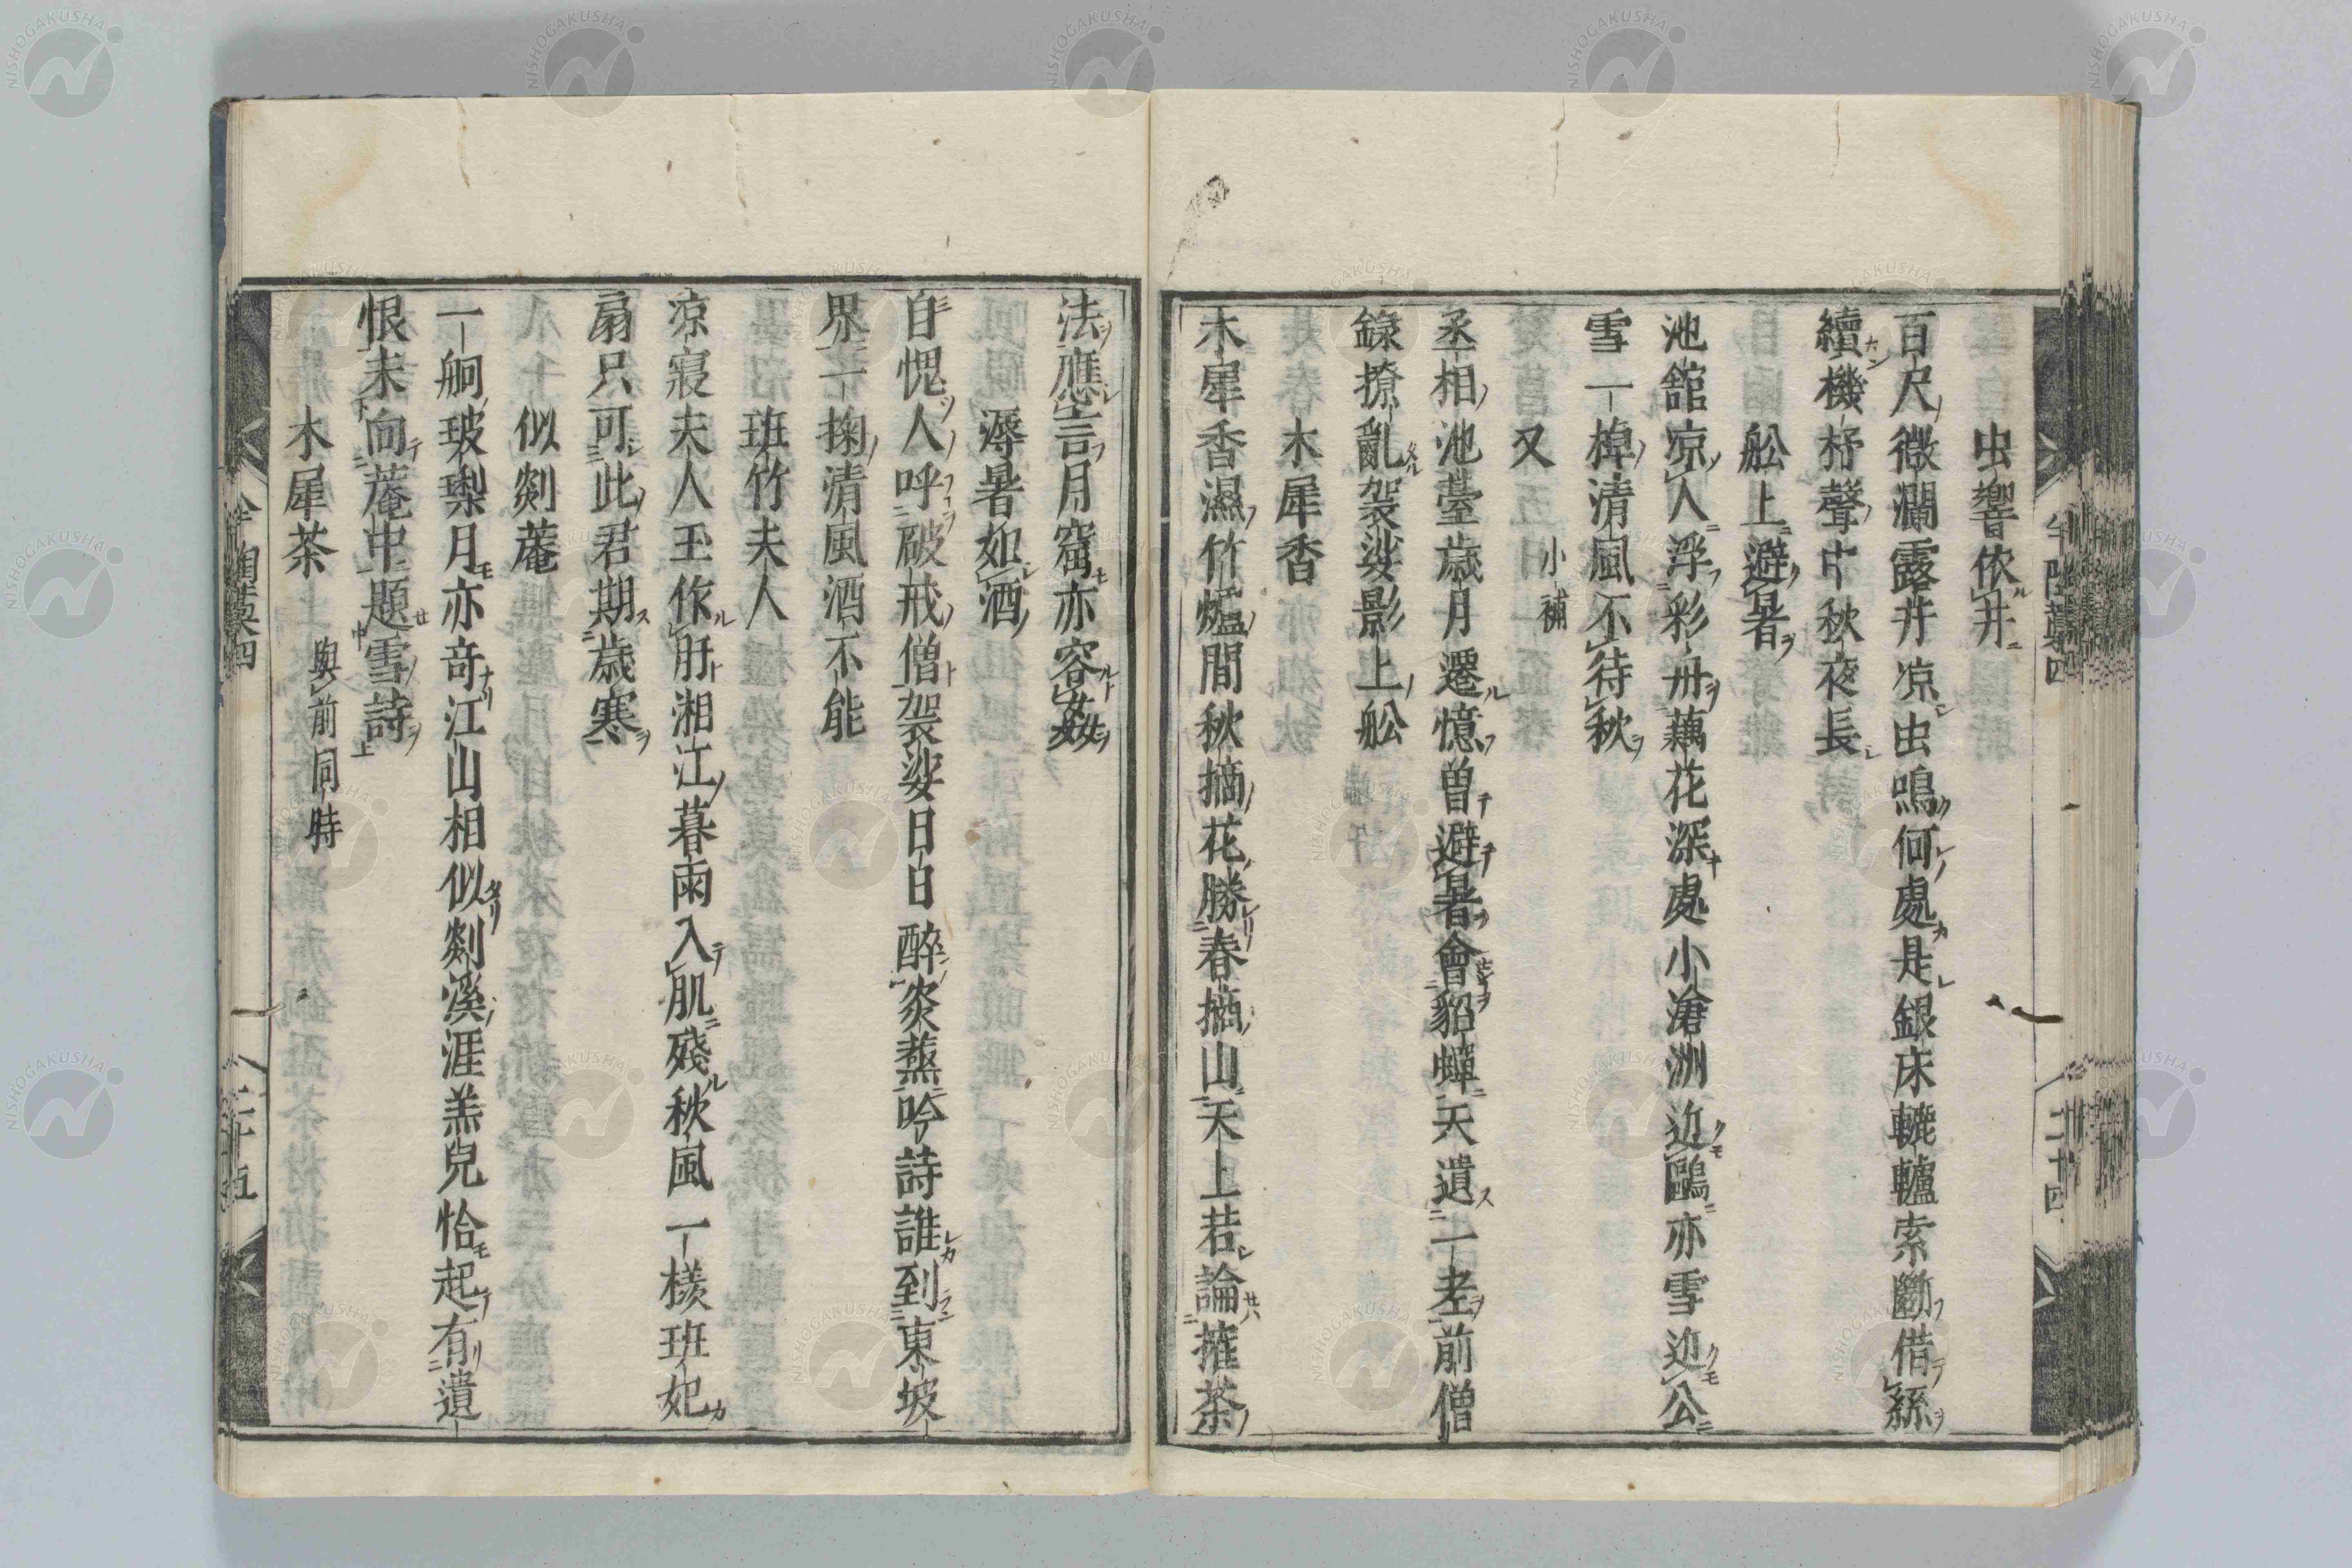 虫響依井
百尺微瀾露井凉虫鳴何處是銀床轆轤索斷借絲
續機杼聲中秋夜長
舩上避暑
池舘凉人浮彩舟藕花深處小滄洲近鷗亦雪近公
雪一棹清風不待秋
又 小補
丞相池臺歳月遷憶曽避暑會貂蟬天遺一老前僧
錄撩亂袈裟影上舩
木犀香
木犀香濕竹爐間秋摘花勝春摘山天上若論搉茶
法應言月窟亦容姦
溽暑如酒
自愧人呼破戒僧袈裟日日醉炎蒸吟詩誰到東坡
界一掬清風酒不能
班竹夫人
凉寝夫人玉作肝湘江暮雨入肌殘秋風一樣班妃
扇只可此君期歳寒
似剡菴
一舸玻瓈月亦竒江山相似剡溪涯羔兒恰起有遺
恨未向菴中題雪詩
木犀茶 與前同時
二十四
二十五